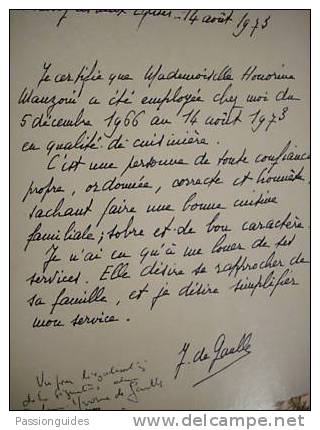 14 août 1973
Je certifie que Mademoiselle Honorine
Manzoni a été employée chez moi du
5 décembre 1966 au 14 août 1973
en qualité de cuisinière.
C'est une personne de toute confiance
propre, ordonnée, correcte et honnête
sachant faire une bonne cuisine
familiale; sobre et de bon caractère.
Je n'ai eu qu'à me louer de ses
services. Elle désire se rapprocher de
sa famille, et je désire simplifier
mon service.
Y. de Gaulle
Vu pour légalisation
de la signature
Yvonne de Gaulle
Passionguides
delcampe.net